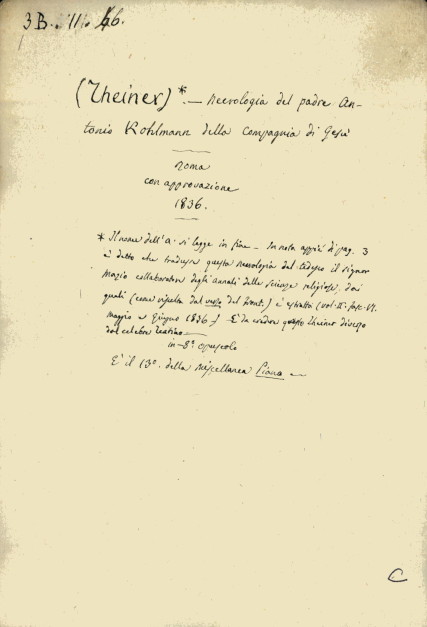 3 B. . 11. . 46.
(Theiner)*. — Necrologia del padre An-
tonio Kohlmann della Compagnia di Gesù
Roma
con approvazione
1836.
* Il nome dell'a. si legge in fine — In nota appiè di pag. 3
è detto che tradusse questa necrologia dal tedesco il signor
Mazio collaboratore degli annali delle scienze religiose, dai
quali (come risulta dal verso del front.) è estratta (vol. II. fasc. VI.
Maggio e Giugno 1836.) È da credere questo Theiner diverso
dal celebre
in-8º. opuscolo
È il 13º. della Miscellanea Piana —
C